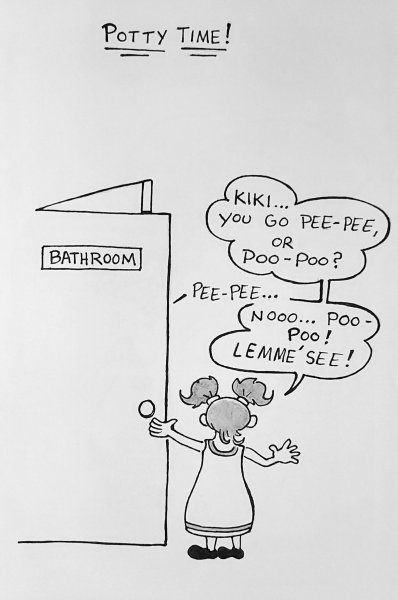 POTTY TIME!
KIKI...
YOU GO PEE-PEE,
OR
POO-POO?
BATHROOM
PEE-PEE...
NOOO... POO-
POO!
LEMME' SEE!